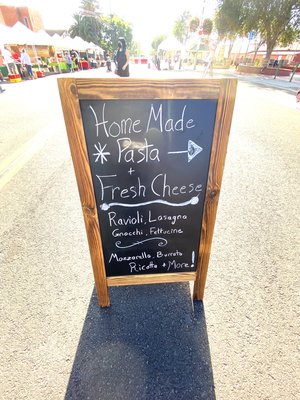 Home Made
* Pasta →
+
Fresh Cheese
Ravioli, Lasagna
Gnocchi, Fettucine
Mozzarella, Burrata
Ricotta + More!